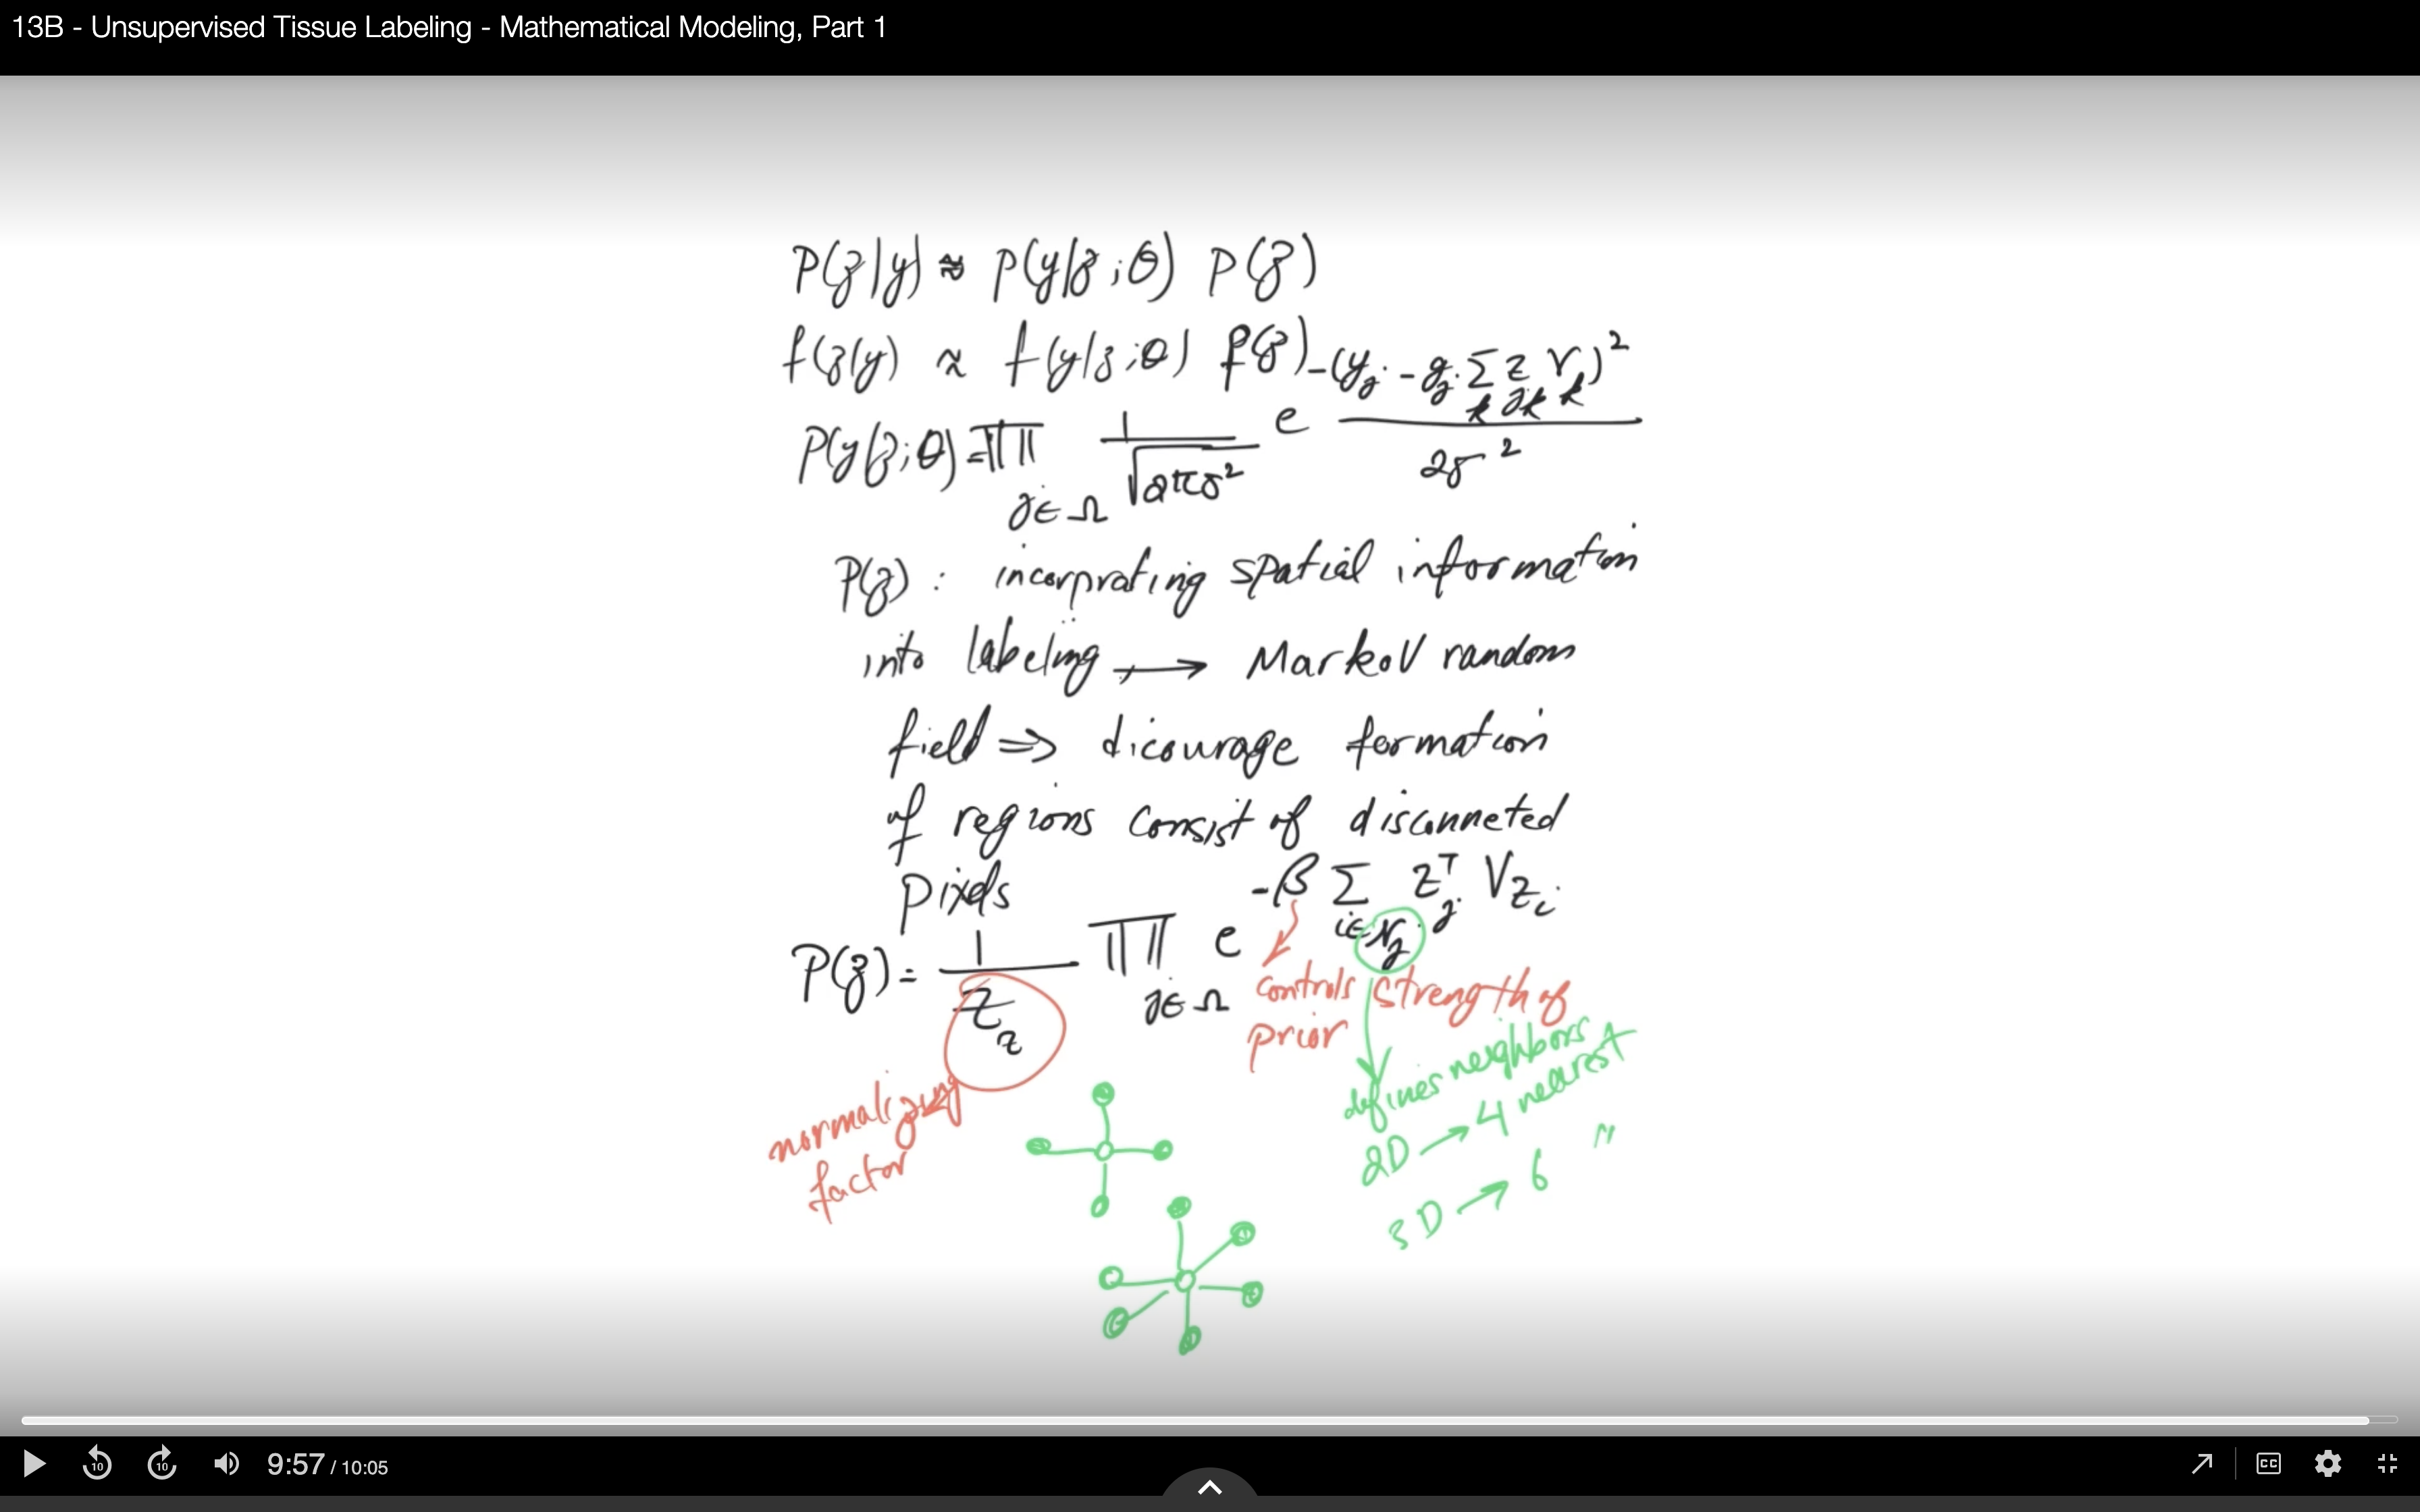 13B - Unsupervised Tissue Labeling - Mathematical Modeling, Part 1
P(z|y) ≈ P(y|z;θ) P(z)
f(z|y) ≈ f(y|z;θ) f(z)
P(y|z;θ) = ∏_{j∈Ω} 1/√(2πσ²) e^{-(y_j - g_j Σ_k z_jk r_k)²/2σ²}
P(z) : incorprating spatial information
into labeling, → Markov random
field ⇒ dicourage formation
of regions consist of disconneted
pixels
P(z) = 1/Z_z ∏_{j∈Ω} e^{-β Σ_{i∈N_j} z_j^T V z_i}
controls strength of
prior
normalizing
factor
defines neighbors
2D → 4 nearest
3D → 6 "
10 10 9:57 / 10:05 CC